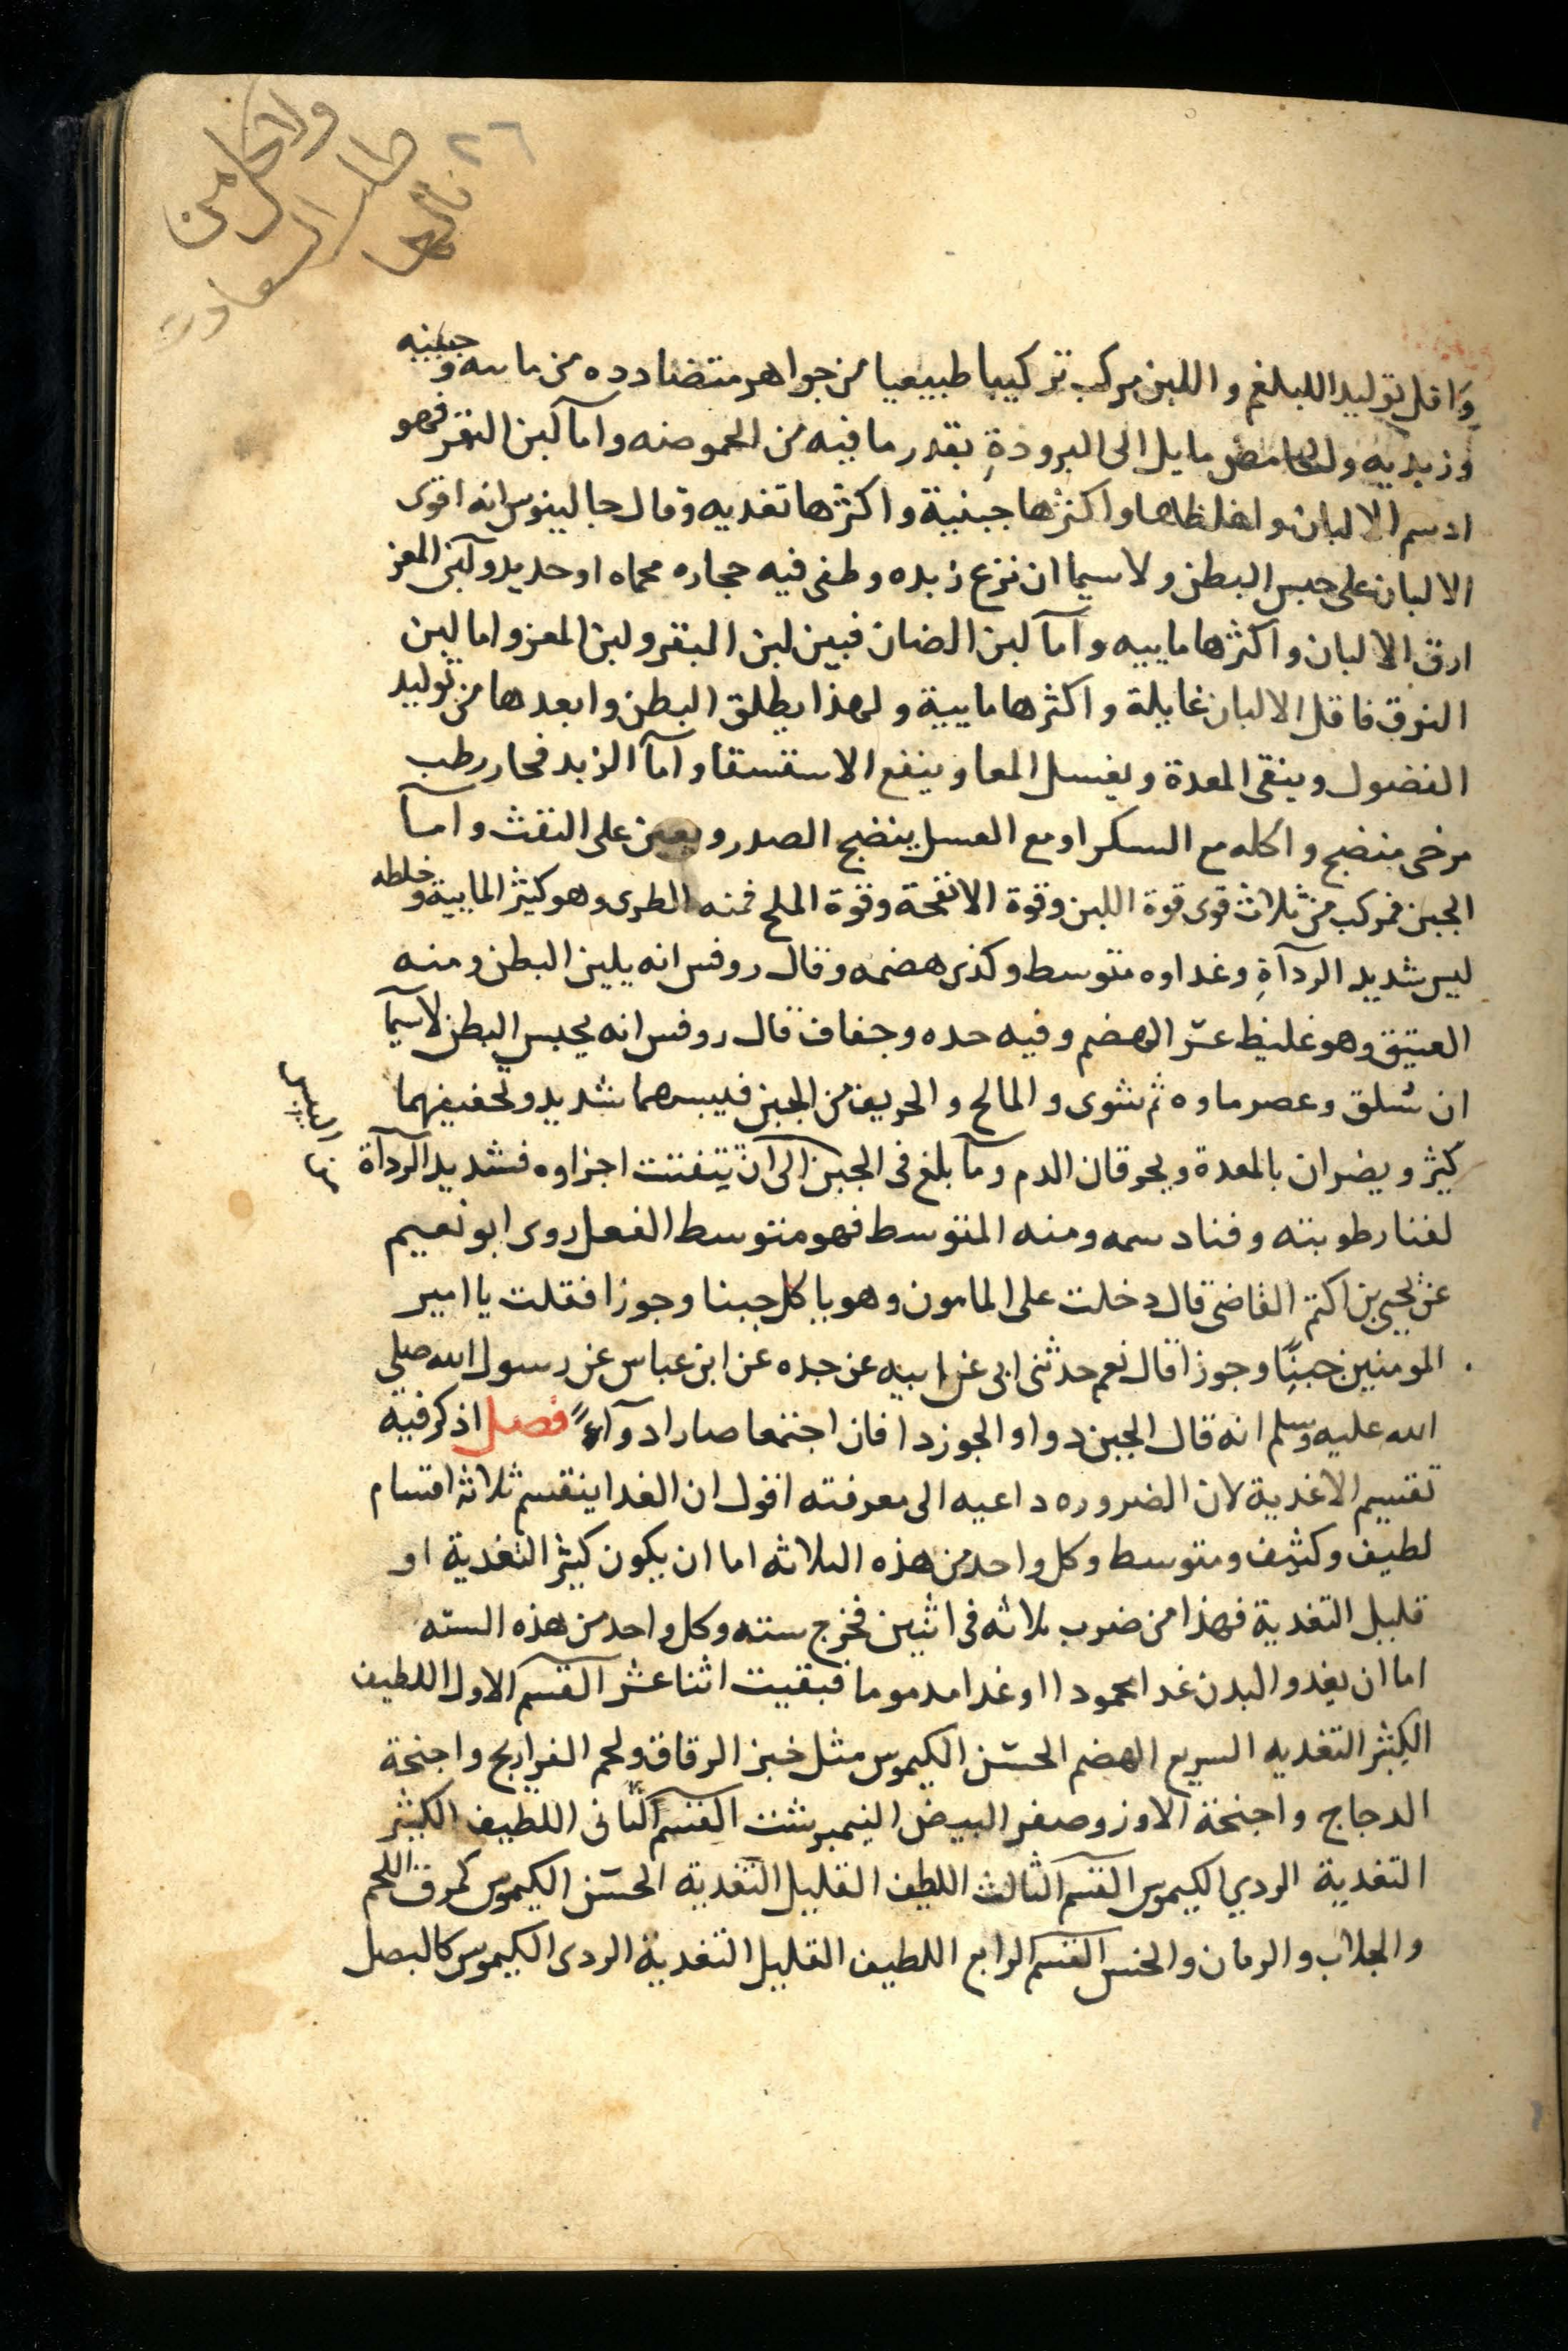 ٢٦
واقل توليدا للبلغم واللبن مركب تركيبا طبيعيا من جواهر متضادده من مايىه وجبنيه
وزبديه والحامض مايل الى البرودةِ بقدر ما فيه من الحموضه واما لبن البقر فهو
ادسم الالبان واغلظها واكثرها جبنية واكثرها تغديه وقال جالينوس انه اقوى
الالبان على حبس البطن ولاسيما ان نزع زبده وطفى فيه حجاره محماه او حديد ولبن المعز
ارق الالبان واكثرها ماييه واما لبن الضان فبين لبن البقر ولبن المعز واما لبن
النوق فاقل الالبان غايلة واكثرها مايية ولهذا يطلق البطن وابعدها من توليد
الفضول وينقى المعدة ويغسل المعا وينفع الاستسقا واما الزبد فحار رطب
مرخى منضج واكله مع السكر او مع العسل ينضج الصدر ويعين على النفث واما
الجبن فمركب من ثلاث قوى قوة اللبن وقوة الانفحة وقوة الملح فمنه الطرى وهو كثير المايية وخلطه
ليس شديد الردآةِ وغداوه متوسط وكذى هضمه وقال روفس انه يلين البطن ومنه
العتيق وهو غليظ عسر الهضم وفيه حده وجفاف قال روفس انه يحبس البطن لاسيما
ان سلق وعصر ماوه ثم شوى والمالح والحريف من الجبن فيبسهما شديد وتجفيفهما
كثير ويضران بالمعدة ويحرقان الدم وما بلغ فى الجبن الى ان يتفتت اجزاوه فشديد الردآة
من اليبس
لفنا رطوبته وفنا دسمه ومنه المتوسط فهو متوسط الفعل روى ابو نعيم
عن يحيى بن اكثم القاضى قال دخلت على المامون وهو ياكل جبنا وجوزا فقلت يا امير
المومنين جبنًا وجوزا قال نعم حدثنى ابى عن ابيه عن جده عن ابن عباس عن رسول الله صلى
الله عليه وسلم انه قال الجبن دوا والجوز دا فان اجتمعا صارا دوآء فصل اذكر فيه
تقسيم الاغدية لان الضروره داعيه الى معرفته اقول ان الغدا ينقسم ثلاثة اقسام
لطيف وكثيف ومتوسط وكل واحد من هذه الثلاثه اما ان يكون كثير التغدية او
قليل التغدية فهذا من ضرب ثلاثه فى اثنين فخرج سته وكل واحد من هذه السته
اما ان يغدو البدن غدا محمودا او غدا مدموما فبقيت اثنا عشر القسم الاول اللطيف
الكثير التغديه السريع الهضم الحسن الكيموس مثل خبز الرقاق ولحم الفراريج واجنحة
الدجاج واجنحة الاوز وصفر البيض النيمبرشت القسم الثانى اللطيف الكثير
التغدية الردي الكيموس القسم الثالث اللطيف القليل التغدية الحسن الكيموس كمرق اللحم
والجلاب والرمان والخس القسم الرابع اللطيف القليل التغدية الردى الكيموس كالبصل